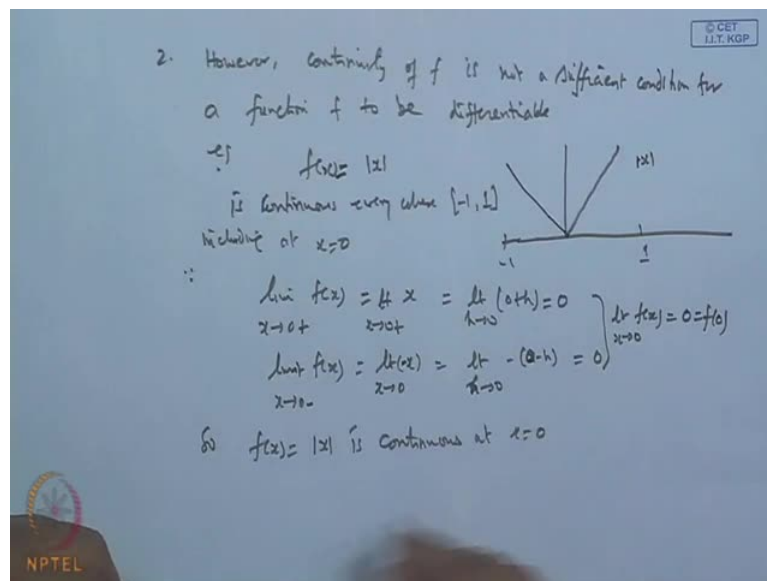 © CET
I.I.T. KGP
2. However, continuity of f is not a sufficient condition for
a function f to be differentiable
eg f(x) = |x|
is continuous every where [-1, 1]
including at x=0
|x|
-1 1
∵
lim f(x) = lt x = lt (0+h) = 0
x→0+ x→0+ h→0
lt f(x) = 0 = f(0)
x→0
limit f(x) = lt (-x) = lt -(0-h) = 0
x→0- x→0 h→0
So f(x) = |x| is continuous at x=0
NPTEL